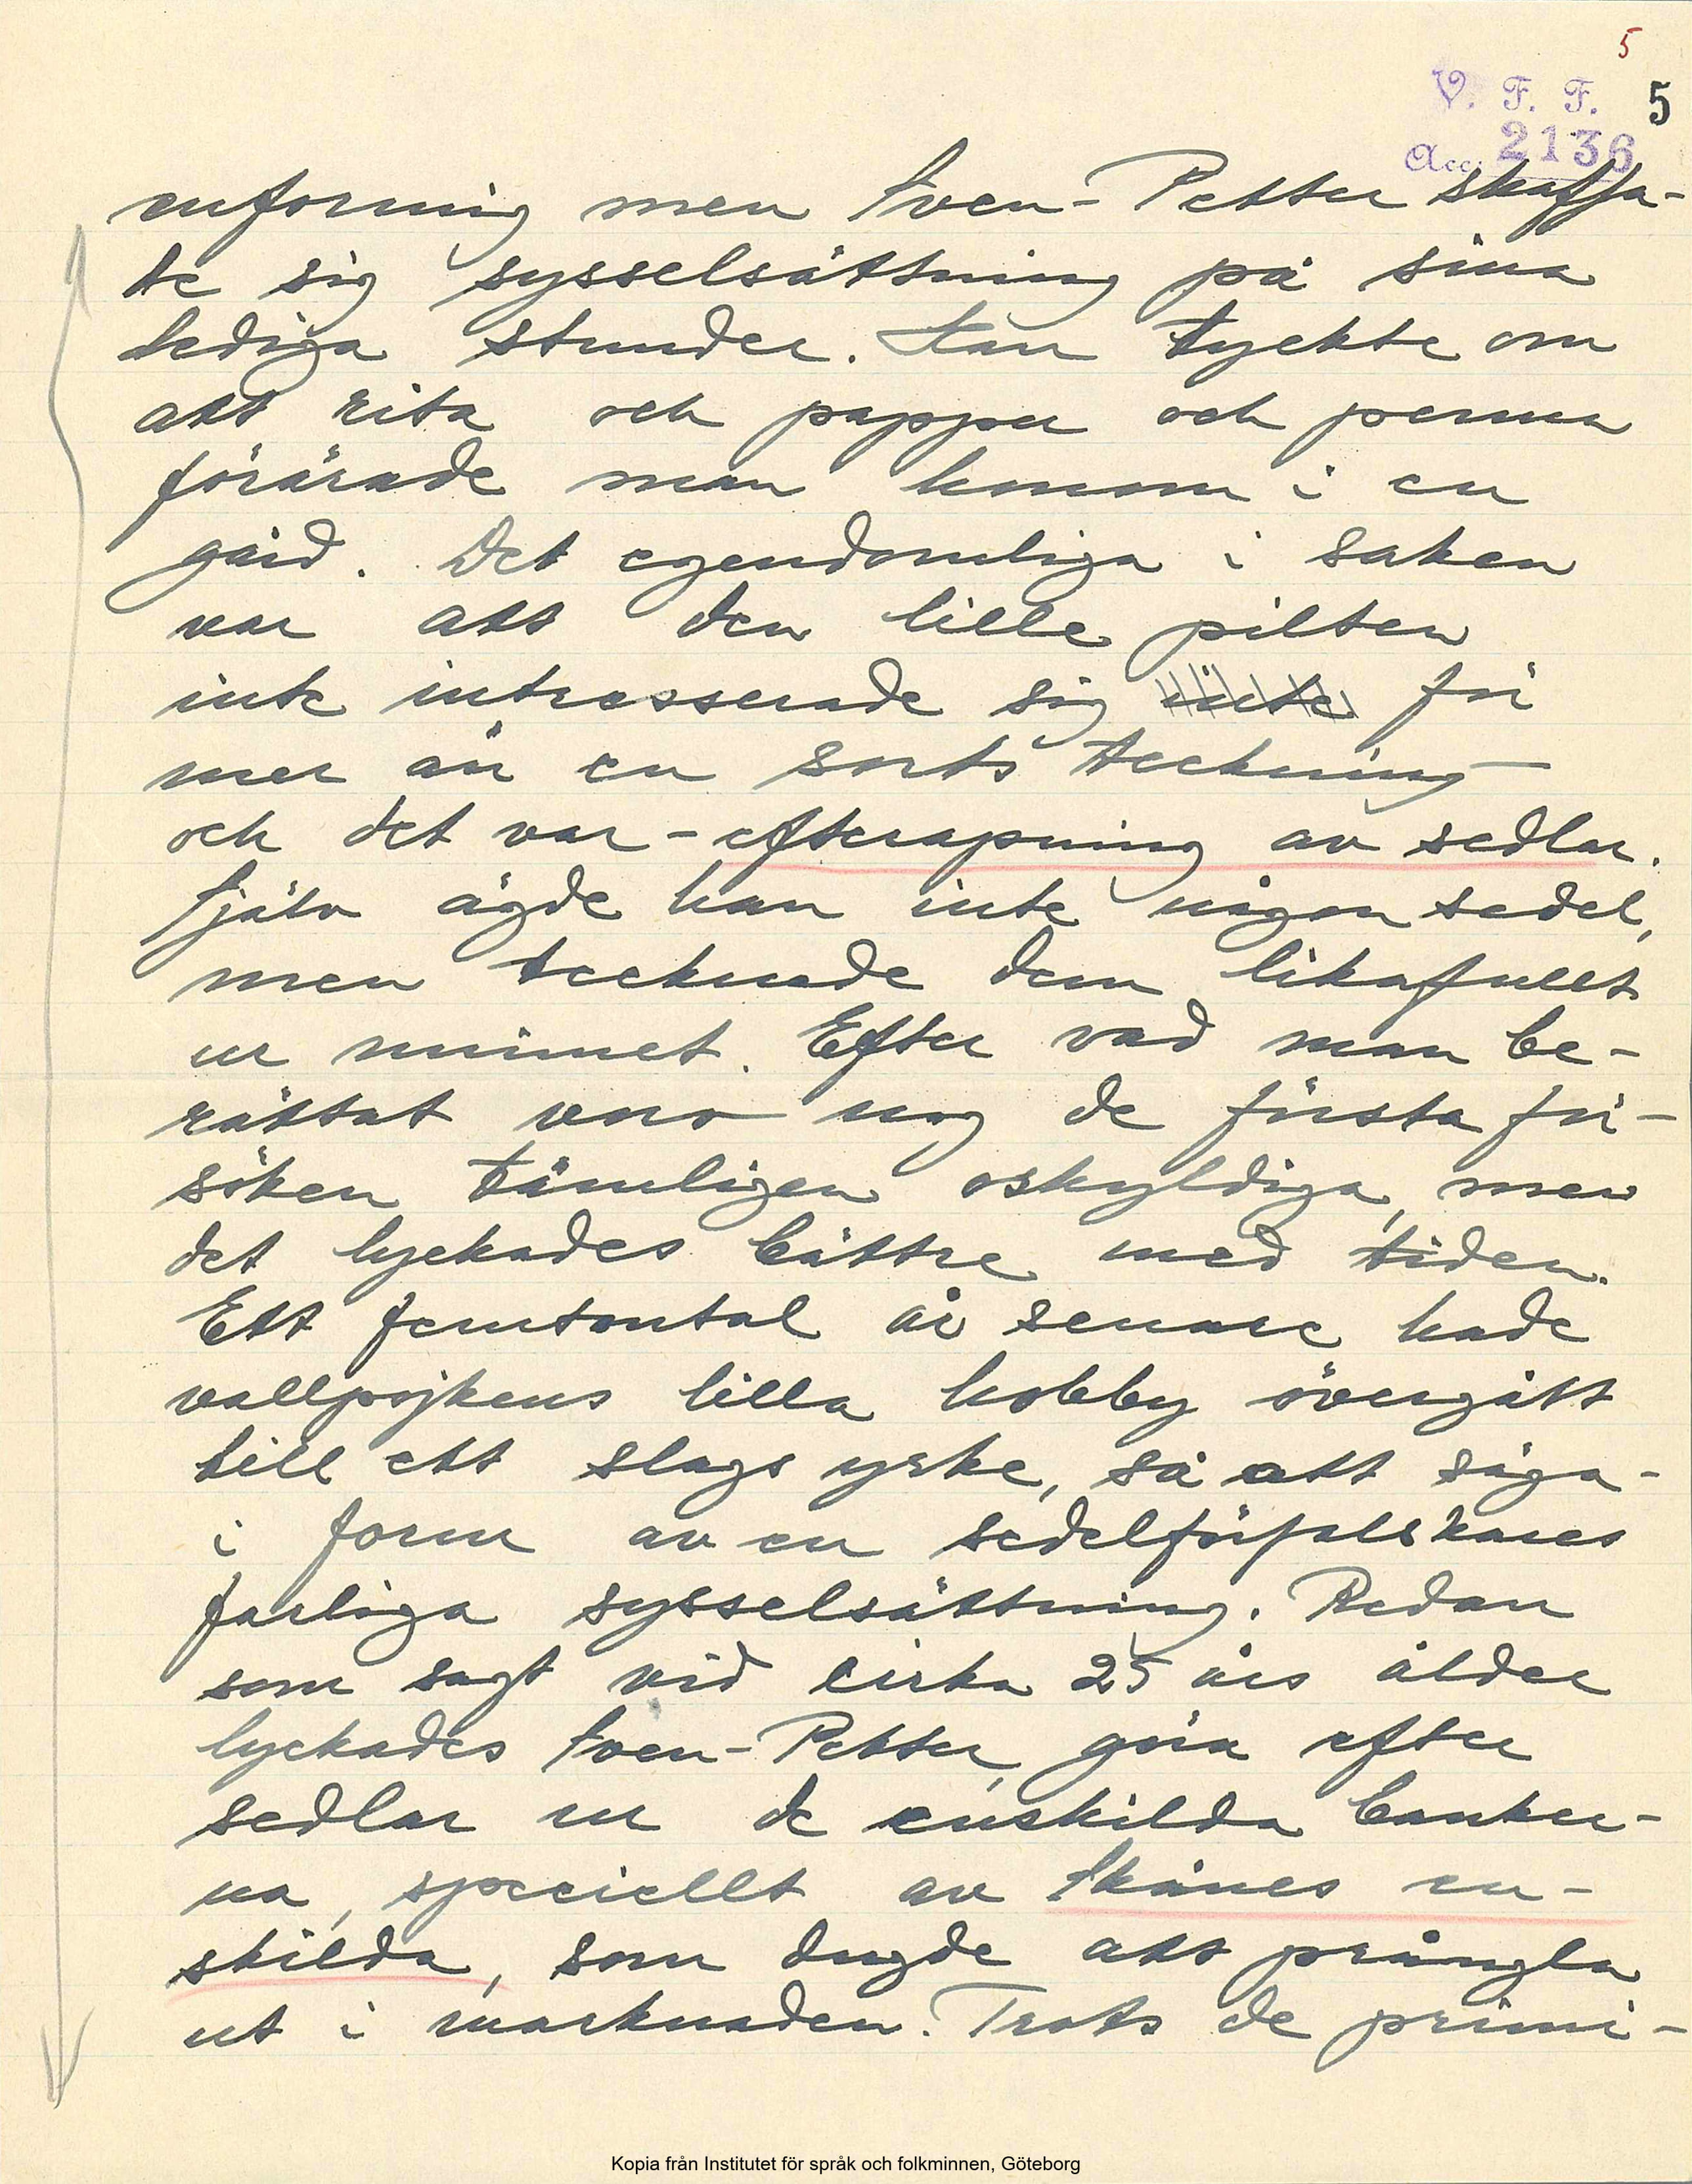 5
V. F. F. 5
Acc. 2136
enformig men Sven-Petter skaffa-
de sig sysselsättning på sina
lediga stunder. Han tyckte om
att rita och papper och penna
förärade man honom i en
gård. Det egendomliga i saken
var att den lille pilten
inte intresserade sig inte för
mer än en sorts teckning
och det var - efterapning av sedlar.
Själv ägde han inte någon sedel,
men tecknade dem likafullt
ur minnet. Efter vad man be-
rättat voro nog de första för-
söken tämligen oskyldiga, men
det lyckades bättre med tiden.
Ett femtontal år senare hade
vallpojkens lilla hobby övergått
till ett slags yrke, så att säga -
i form av en sedelförfalskares
farliga sysselsättning. Redan
som sagt vid cirka 25 års ålder
lyckades Sven-Petter, göra efter
sedlar ur de enskilda banker-
na, speciellt av Skånes en-
skilda, som dugde att prångla
ut i marknaden. Trots de primi-
Kopia från Institutet för språk och folkminnen, Göteborg